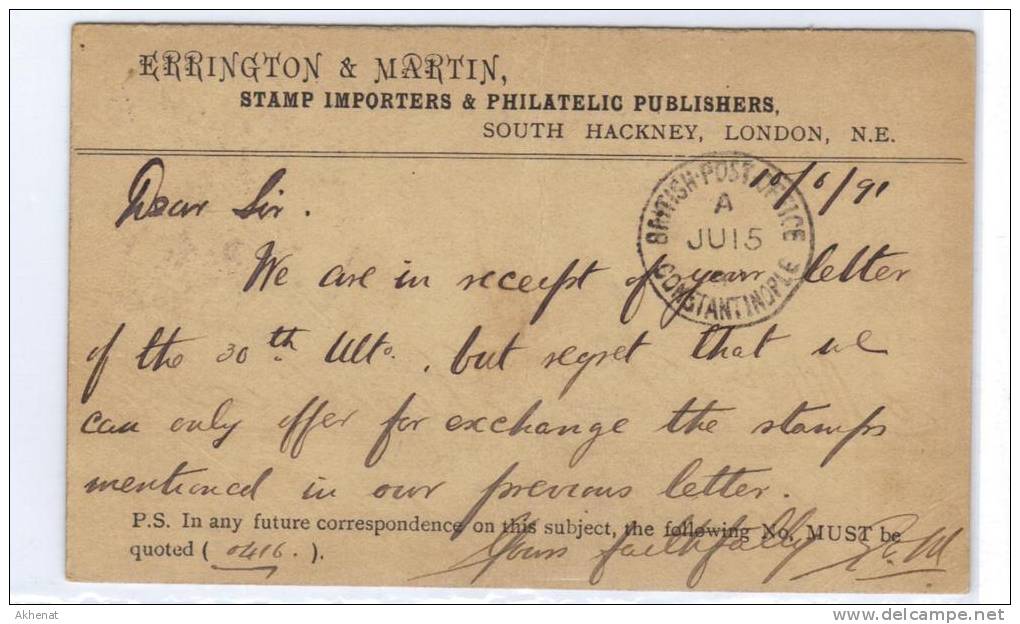 ERRINGTON & MARTIN,
STAMP IMPORTERS & PHILATELIC PUBLISHERS,
SOUTH HACKNEY, LONDON, N.E.
10/6/91
BRITISH·POST OFFICE
A
JU15
CONSTANTINOPLE
Dear Sir.
We are in receipt of your letter
of the 30th Ulto., but regret that we
can only offer for exchange the stamps
mentioned in our previous letter.
P.S. In any future correspondence on this subject, the following No. MUST be
quoted (0416.).
Yours faithfully E&M
Akhenat
www.delcampe.net